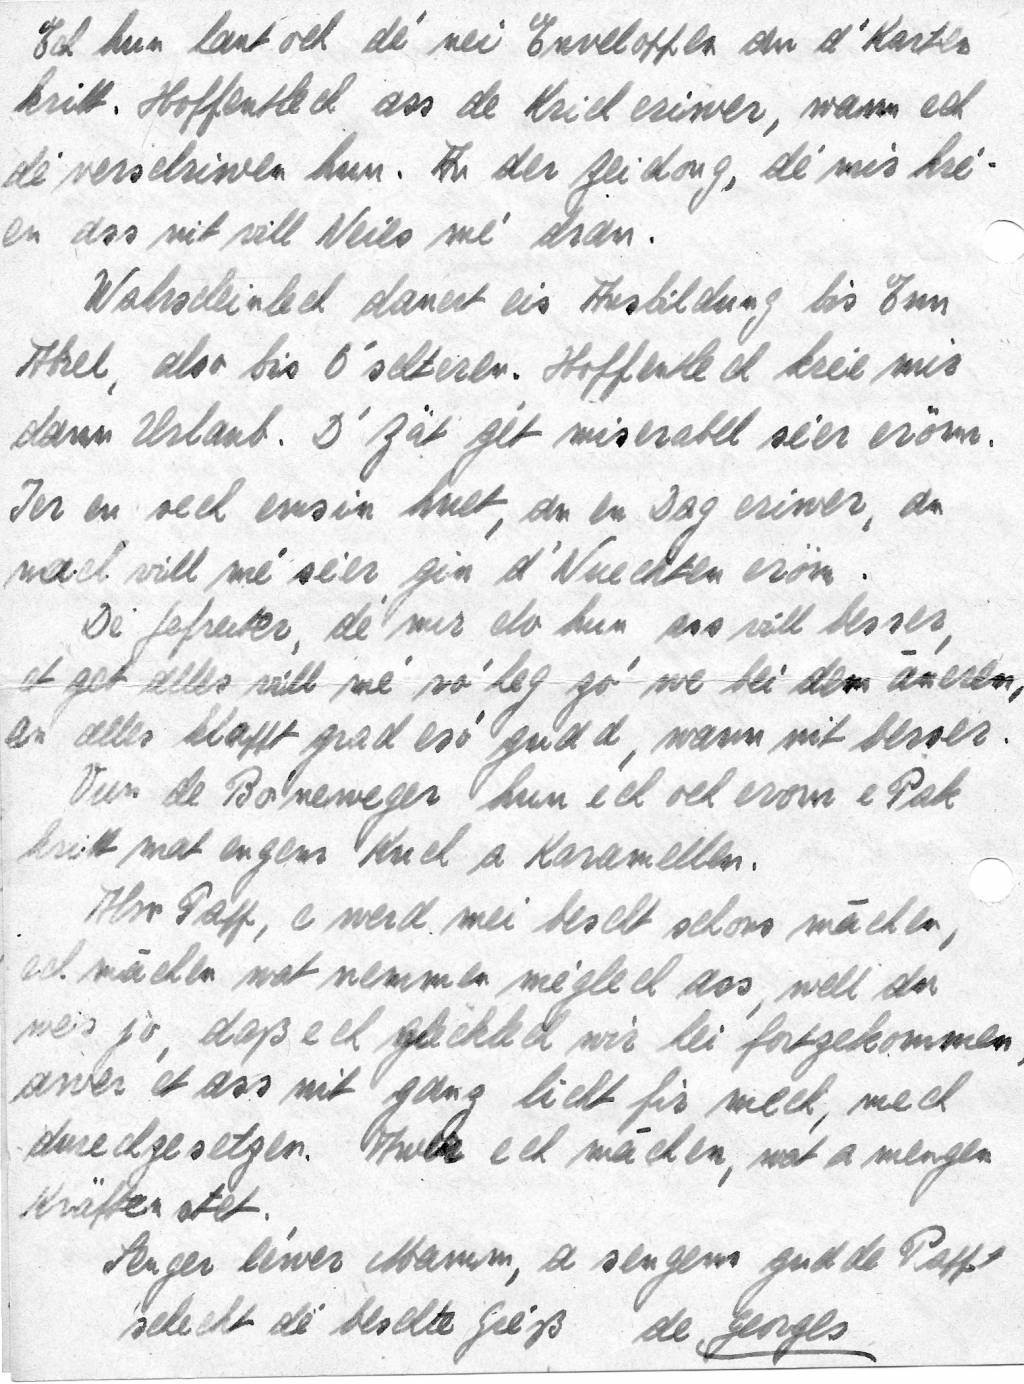 Ech hun laut och dé nei Enveloppen an d'Karten
kritt. Hoffentlech ass de Krich eriwer, wann ech
dé verschriwen hun. An der Zeidong, dé mir kré-
en ass nit vill Neies mé dran.
Wahrscheinlech dauert eis Ausbildung bis Enn
Abrel, also bis O'schteren. Hoffentlech kreie mir
dann Urlaub. D'Zät gét miserabel séier eröm.
Ier en sech emsin huet, an en Dag eriwer, an
nach vill mé séier gin d'Nuechten eröm.
Dé Gefreiter, dé mir elo hun ass vill besser,
et get alles vill mé ró'heg zó we bei dem äneren,
an alles klappt grad esó gudd, wann nit besser.
Vun de Boneweger hun ech och erom e Pak
kritt mat engem Kuch a Karamellen.
Also Papp, e werd mei bescht schons mächen,
ech mächen wat nemmen méglech ass, well du
wes jo, daß ech glécklech wir bei fortzekommen,
awer et ass nit ganz licht fir mech, mech
durechzesetzen. Awer ech mächen, wat a mengen
Kräften stet.
Senger léwer Mamm, a sengem gudde Papp
schecht dé beschte Gréß de Georges